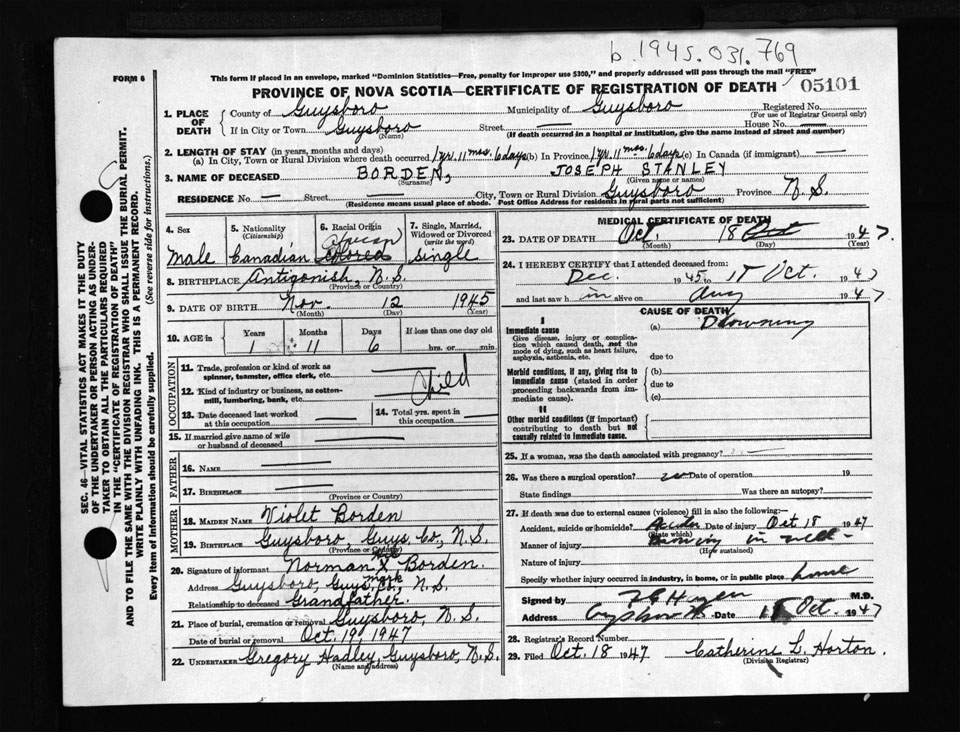 b. 1945. 031. 769
FORM 6
This form if placed in an envelope, marked "Dominion Statistics—Free, penalty for improper use $300," and properly addressed will pass through the mail "FREE"
PROVINCE OF NOVA SCOTIA—CERTIFICATE OF REGISTRATION OF DEATH
05101
SEC. 46—VITAL STATISTICS ACT MAKES IT THE DUTY
OF THE UNDERTAKER OR PERSON ACTING AS UNDER-
TAKER TO OBTAIN ALL THE PARTICULARS REQUIRED
IN THE "CERTIFICATE OF REGISTRATION OF DEATH"
AND TO FILE THE SAME WITH THE DIVISION REGISTRAR WHO SHALL ISSUE THE BURIAL PERMIT.
WRITE PLAINLY WITH UNFADING INK. THIS IS A PERMANENT RECORD.
Every item of information should be carefully supplied. (See reverse side for instructions.)
1. PLACE OF DEATH
County of Guysboro Municipality of Guysboro Registered No.
(For use of Registrar General only)
If in City or Town Guysboro Street — House No. —
(Name) (If death occurred in a hospital or institution, give the name instead of street and number)
2. LENGTH OF STAY (in years, months and days)
(a) In City, Town or Rural Division where death occurred 1 yr. 11 mos. 6 days (b) In Province 1 yr. 11 mos. 6 days (c) In Canada (if immigrant) —
3. NAME OF DECEASED BORDEN, JOSEPH STANLEY
(Surname) (Given name or names)
RESIDENCE No. — Street — City, Town or Rural Division Guysboro Province N.S.
(Residence means usual place of abode. Post Office Address for residents in rural parts not sufficient)
4. Sex
Male
5. Nationality
(Citizenship)
Canadian
6. Racial Origin
African
7. Single, Married,
Widowed or Divorced
(write the word)
Single
8. BIRTHPLACE Antigonish, N.S.
(Province or Country)
9. DATE OF BIRTH Nov. 12 1945
(Month) (Day) (Year)
10. AGE in
Years Months Days If less than one day old
1 11 6 hrs. or min.
OCCUPATION
11. Trade, profession or kind of work as
spinner, teamster, office clerk, etc.
Child
12. Kind of industry or business, as cotton-
mill, lumbering, bank, etc.
13. Date deceased last worked
at this occupation
14. Total yrs. spent in
this occupation
15. If married give name of wife
or husband of deceased
FATHER
16. NAME —
17. BIRTHPLACE —
(Province or Country)
MOTHER
18. MAIDEN NAME Violet Borden
19. BIRTHPLACE Guysboro, Guys. Co., N.S.
(Province or Country)
20. Signature of informant Norman his X mark Borden.
Address Guysboro, Guys. Co., N.S.
Relationship to deceased Grandfather.
21. Place of burial, cremation or removal Guysboro, N.S.
Date of burial or removal Oct. 19, 1947
22. UNDERTAKER Gregory Hadley, Guysboro, N.S.
(Name and address)
MEDICAL CERTIFICATE OF DEATH
23. DATE OF DEATH Oct. 18 1947.
(Month) (Day) (Year)
24. I HEREBY CERTIFY that I attended deceased from:
Dec. 1945 to 18 Oct. 1947
and last saw him alive on Aug 1947
CAUSE OF DEATH
I
Immediate cause
Give disease, injury or complica-
tion which caused death, not the
mode of dying, such as heart failure,
asphyxia, asthenia, etc.
(a) Drowning
due to
Morbid conditions, if any, giving rise to
immediate cause (stated in order
proceeding backwards from im-
mediate cause).
(b)
due to
(c)
II
Other morbid conditions (if important)
contributing to death but not
causally related to immediate cause.
25. If a woman, was the death associated with pregnancy? —
26. Was there a surgical operation? no Date of operation 19
State findings Was there an autopsy?
27. If death was due to external causes (violence) fill in also the following:—
Accident, suicide or homicide? Date of injury Oct 18 1947
(State which)
Manner of injury Drowning in well -
(How sustained)
Nature of injury
Specify whether injury occurred in industry, in home, or in public place home
Signed by M.D.
Address Date 18 Oct. 1947
28. Registrar's Record Number
29. Filed Oct. 18 1947 Catherine L. Horton.
(Division Registrar)